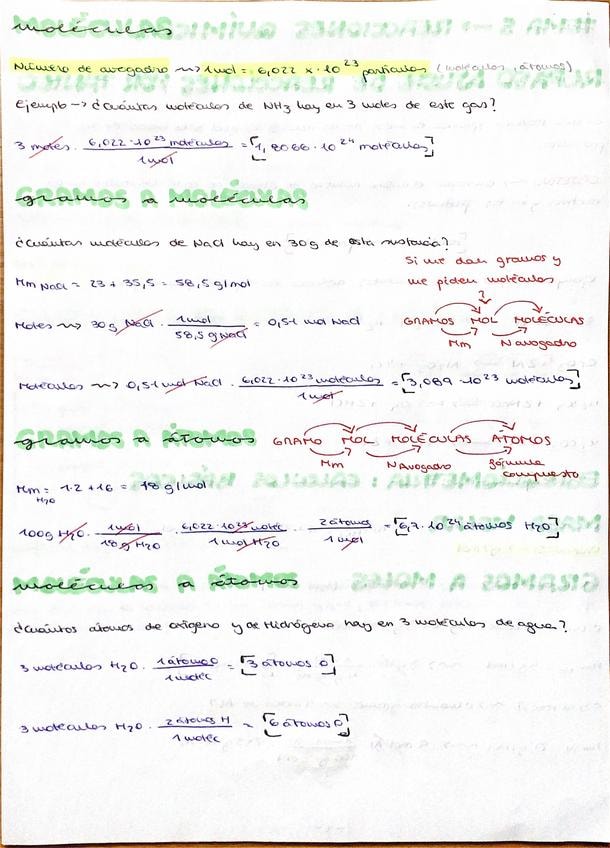 moléculas
Número de avogadro ⇝ 1mol = 6,022 x · 10²³ partículas (moléculas, átomos)
Ejemplo → ¿Cuántas moléculas de NH3 hay en 3 moles de este gas?
3 moles · 6,022 · 10²³ moléculas / 1 mol = [1,8066 · 10²⁴ moléculas]
gramos a moléculas
¿Cuántas moléculas de NaCl hay en 30g de esta sustancia?
Si me dan gramos y
me piden moléculas
Mm NaCl = 23 + 35,5 = 58,5 g/mol
?
GRAMOS MOL MOLÉCULAS
Mm N avogadro
Moles ⇝ 30g NaCl · 1mol / 58,5 g NaCl = 0,51 mol NaCl
Moléculas ⇝ 0,51 mol NaCl · 6,022 · 10²³ moléculas / 1mol = [3,089 · 10²³ moléculas]
gramos a átomos
GRAMO MOL MOLÉCULAS ÁTOMOS
Mm NAvogadro fórmula
compuesto
Mm H2O = 1·2 + 16 = 18 g/mol
100g H2O · 1mol / 18 g H2O · 6,022 · 10²³ moléc / 1 mol H2O · 2 átomos / 1mol = [6,7 · 10²⁴ átomos H2O]
moléculas a átomos
¿Cuántos átomos de oxígeno y de Hidrógeno hay en 3 moléculas de agua?
3 moléculas H2O · 1 átomo O / 1 moléc = [3 átomos O]
3 moléculas H2O · 2 átomos H / 1 moléc = [6 átomos O]